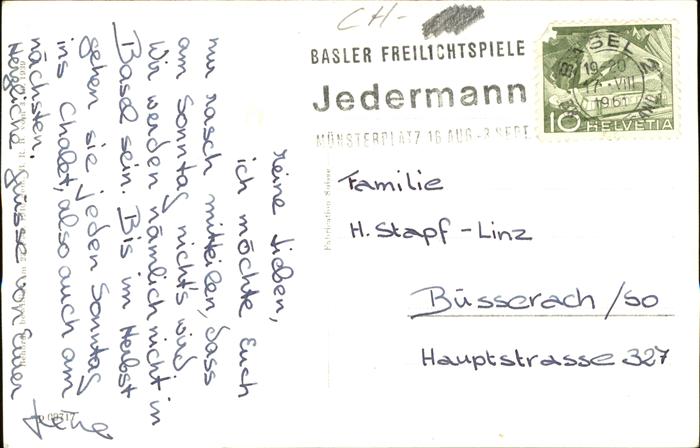 CH-
BASLER FREILICHTSPIELE
Jedermann
MÜNSTERPLATZ 16 AUG.-3 SEPT.
BASEL
19-20
17.VIII
1961
10 HELVETIA
Meine Lieben,
ich möchte Euch
nur rasch mitteilen, dass
am Sonntag nichts wird
Wir werden nämlich nicht in
Basel sein. Bis im Herbst
gehen sie jeden Sonntag
ins Chalet, also auch am
nächsten.
Herzliche Grüsse von Eurer
Familie
H. Stapf-Linz
Büsserach/SO
Hauptstrasse 327
Fabrication Suisse